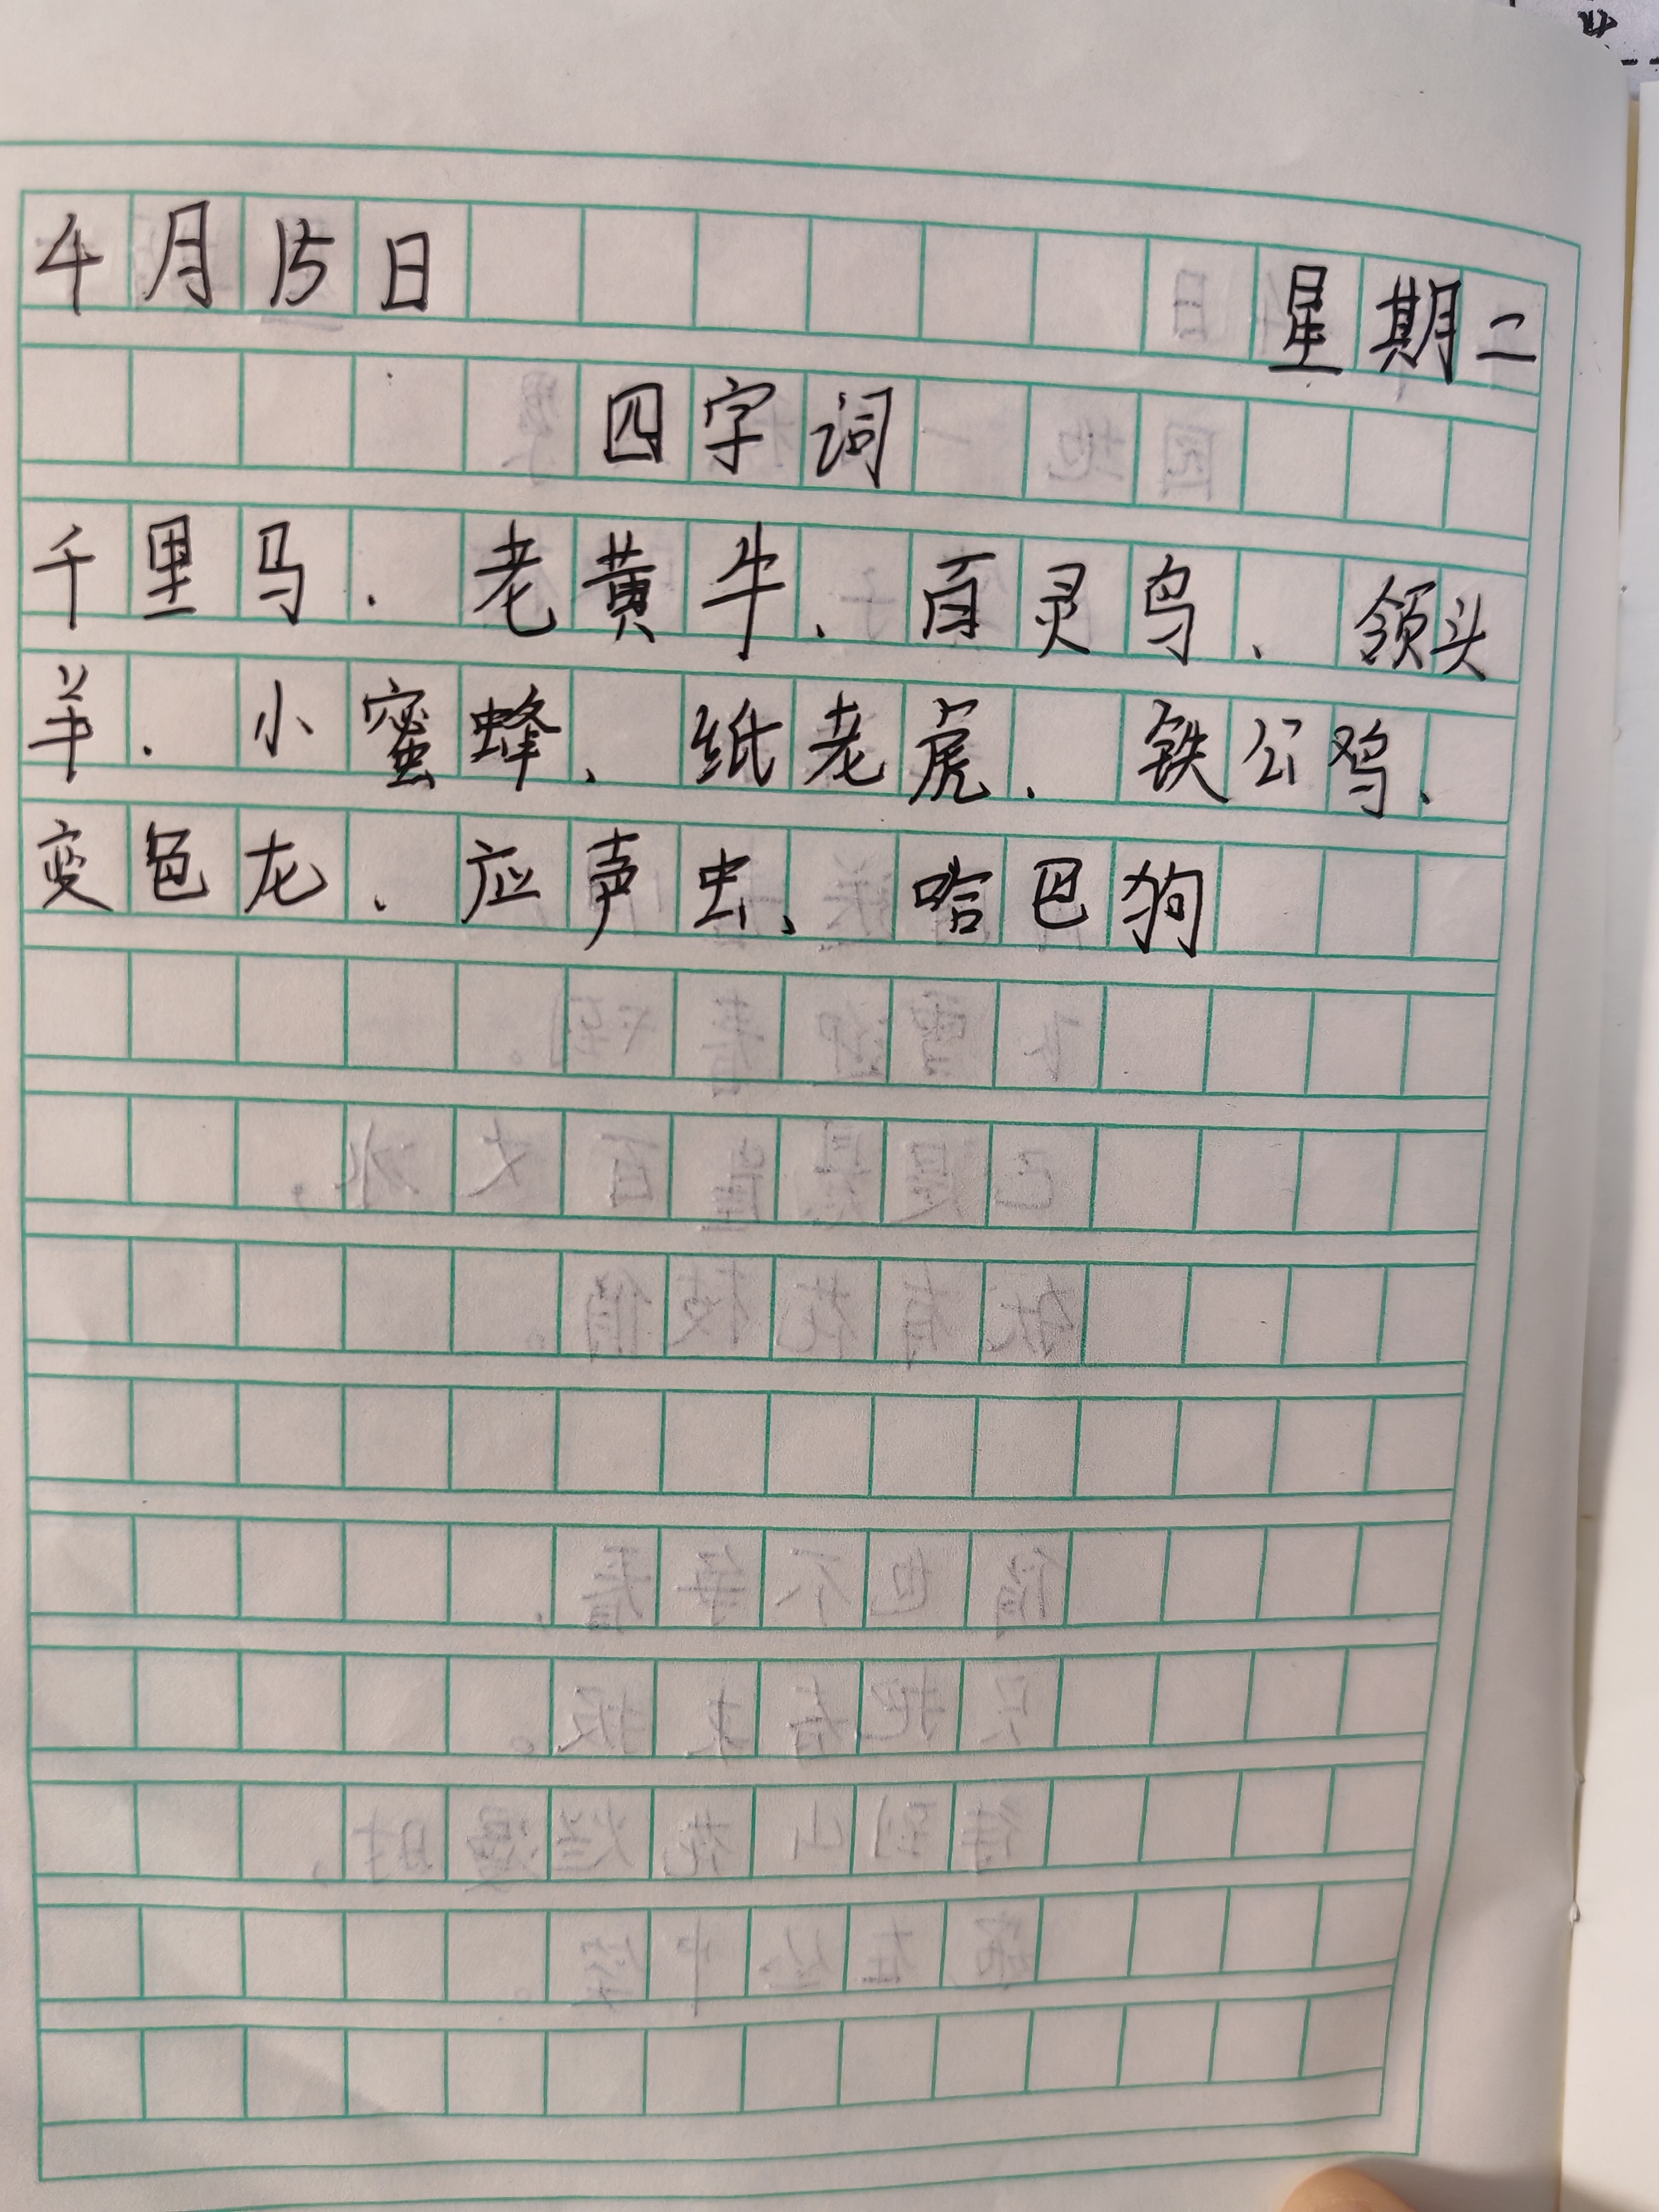 4月15日 星期二
四字词
千里马、老黄牛、百灵鸟、领头
羊、小蜜蜂、纸老虎、铁公鸡、
变色龙、应声虫、哈巴狗